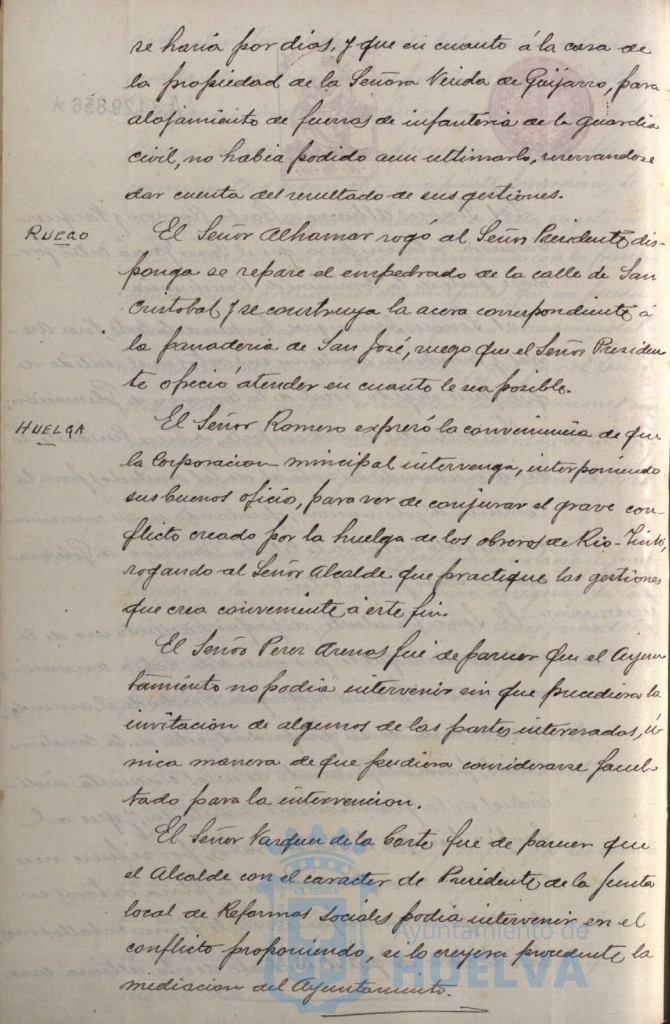 se haria por dias, y que en cuanto á la casa de
la propiedad de la Señora Viuda de Guijarro, para
alojamiento de fuerzas de infanteria de la guardia
civil, no habia podido aun ultimarlo, reservandose
dar cuenta del resultado de sus gestiones.
RUEGO
El Señor Alhamar rogó al Señor Presidente dis-
ponga se repare el empedrado de la calle de San
Cristobal y se construya la acera correspondiente á
la panaderia de San José, ruego que el Señor Presiden
te ofreció atender en cuanto le sea posible.
HUELGA
El Señor Romero expresó la conveniencia de que
la Corporacion municipal intervenga, interponiendo
sus buenos oficio, para ver de conjurar el grave con-
flicto creado por la huelga de los obreros de Rio-Tinto,
rogando al Señor Alcalde que practique las gestiones
que crea conveniente á este fin.
El Señor Perez Arenas fué de parecer que el Ayun
tamiento no podia intervenir sin que precediera la
invitación de algunos de las partes interesadas, ú-
nica manera de que pudiera considerarse facul-
tado para la intervencion.
El Señor Vazquez de la Corte fue de parecer que
el Alcalde con el caracter de Presidente de la Junta
local de Reformas Sociales podia intervenir en el
conflicto proponiendo, si lo creyera procedente la
mediacion del Ayuntamiento.
Ayuntamiento de
HUELVA